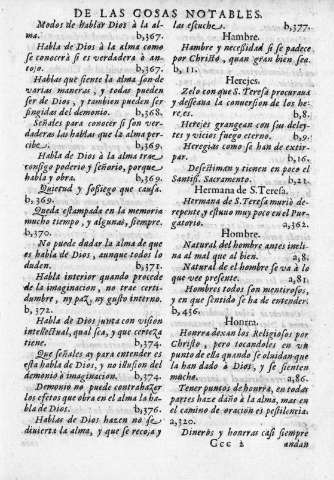 DE LAS COSAS NOTABLES.
Modos de hablar Dios à la al-
ma. b,367.
Habla de Dios à la alma como
se conocerà si es verdadera ò an-
tojo. b,367.
Hablas que siente la alma son de
varias maneras, y todas pueden
ser de Dios, y tambien pueden ser
fingidas del demonio. b,368.
Señales para conocer si son ver-
daderas las hablas que la alma per-
cibe. b,369.
Habla de Dios à la alma trae
consigo poderio, y señorio, porque
habla y obra. b,369.
Quietud y sosiego que causa.
b,369.
Queda estampada en la memoria
mucho tiempo, y algunas, siempre.
b,370.
No puede dadar la alma de que
es habla de Dios, aunque todos lo
duden. b,371.
Habla interior quando precede
de la imaginacion, no trae certi-
dumbre, ny paz, ny gusto interno.
b,372.
Habla de Dios junta con vision
intellectual, qual sea, y que certeza
tiene. b,374.
Que señales ay para entender es
esta habla de Dios, y no illusion del
demonio ò imaginacion. b,374.
Demonio no puede contrahazer
los efetos que obra en el alma la ha-
bla de Dios. b,376.
Hablas de Dios hazen no se
divierta la alma, y que se recoja y
las escuche. b,377.
Hambre.
Hambre y necessidad si se padece
por Christo, quan gran bien sea.
b,11.
Herejes.
Zelo con que S. Teresa procurava
y desseava la conversion de los he-
reges. b,8.
Herejes grangean con sus deley-
tes y vicios fuego eterno. b,9.
Heregias como se han de extir-
par. b,16.
Desestiman y tienen en poco el
Santiss. Sacramento. b,21.
Hermana de S. Teresa.
Hermana de S. Teresa muriò de-
repente, y estuvo muy poco en el Pur-
gatorio. a,362.
Hombre.
Natural del hombre antes incli-
na al mal que al bien. a,8.
Natural de el hombre se va à lo
que vee presente. a,81.
Hombres todos son mentirosos,
y en que sentido se ha de entender.
b,436.
Honrra.
Honrra dexan los Religiosos por
Christo, pero tocandoles en un
punto de ella quando se olvidan que
la han dado à Dios, y se sienten
mucho. a,86.
Tener puntos de honrra, en todas
partes haze daño à la alma, mas en
el camino de oracion es pestilencia.
a,320.
Dineros y honrras casi siempre
Ccc 2 andan